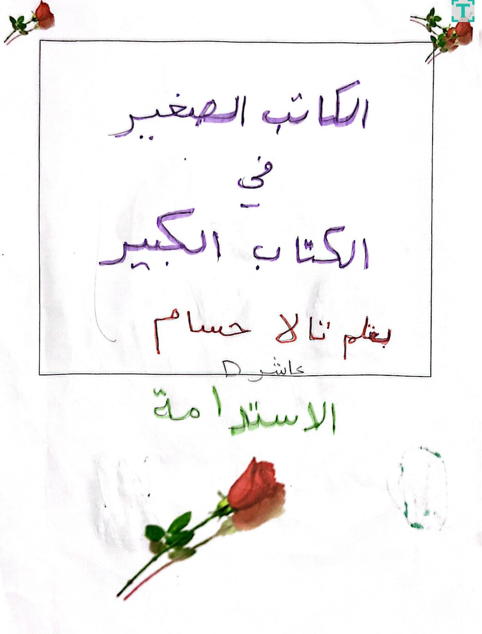 الكاتب الصغير
في
الكتاب الكبير
بقلم تالا حسام
عاشر D
الاستدامة